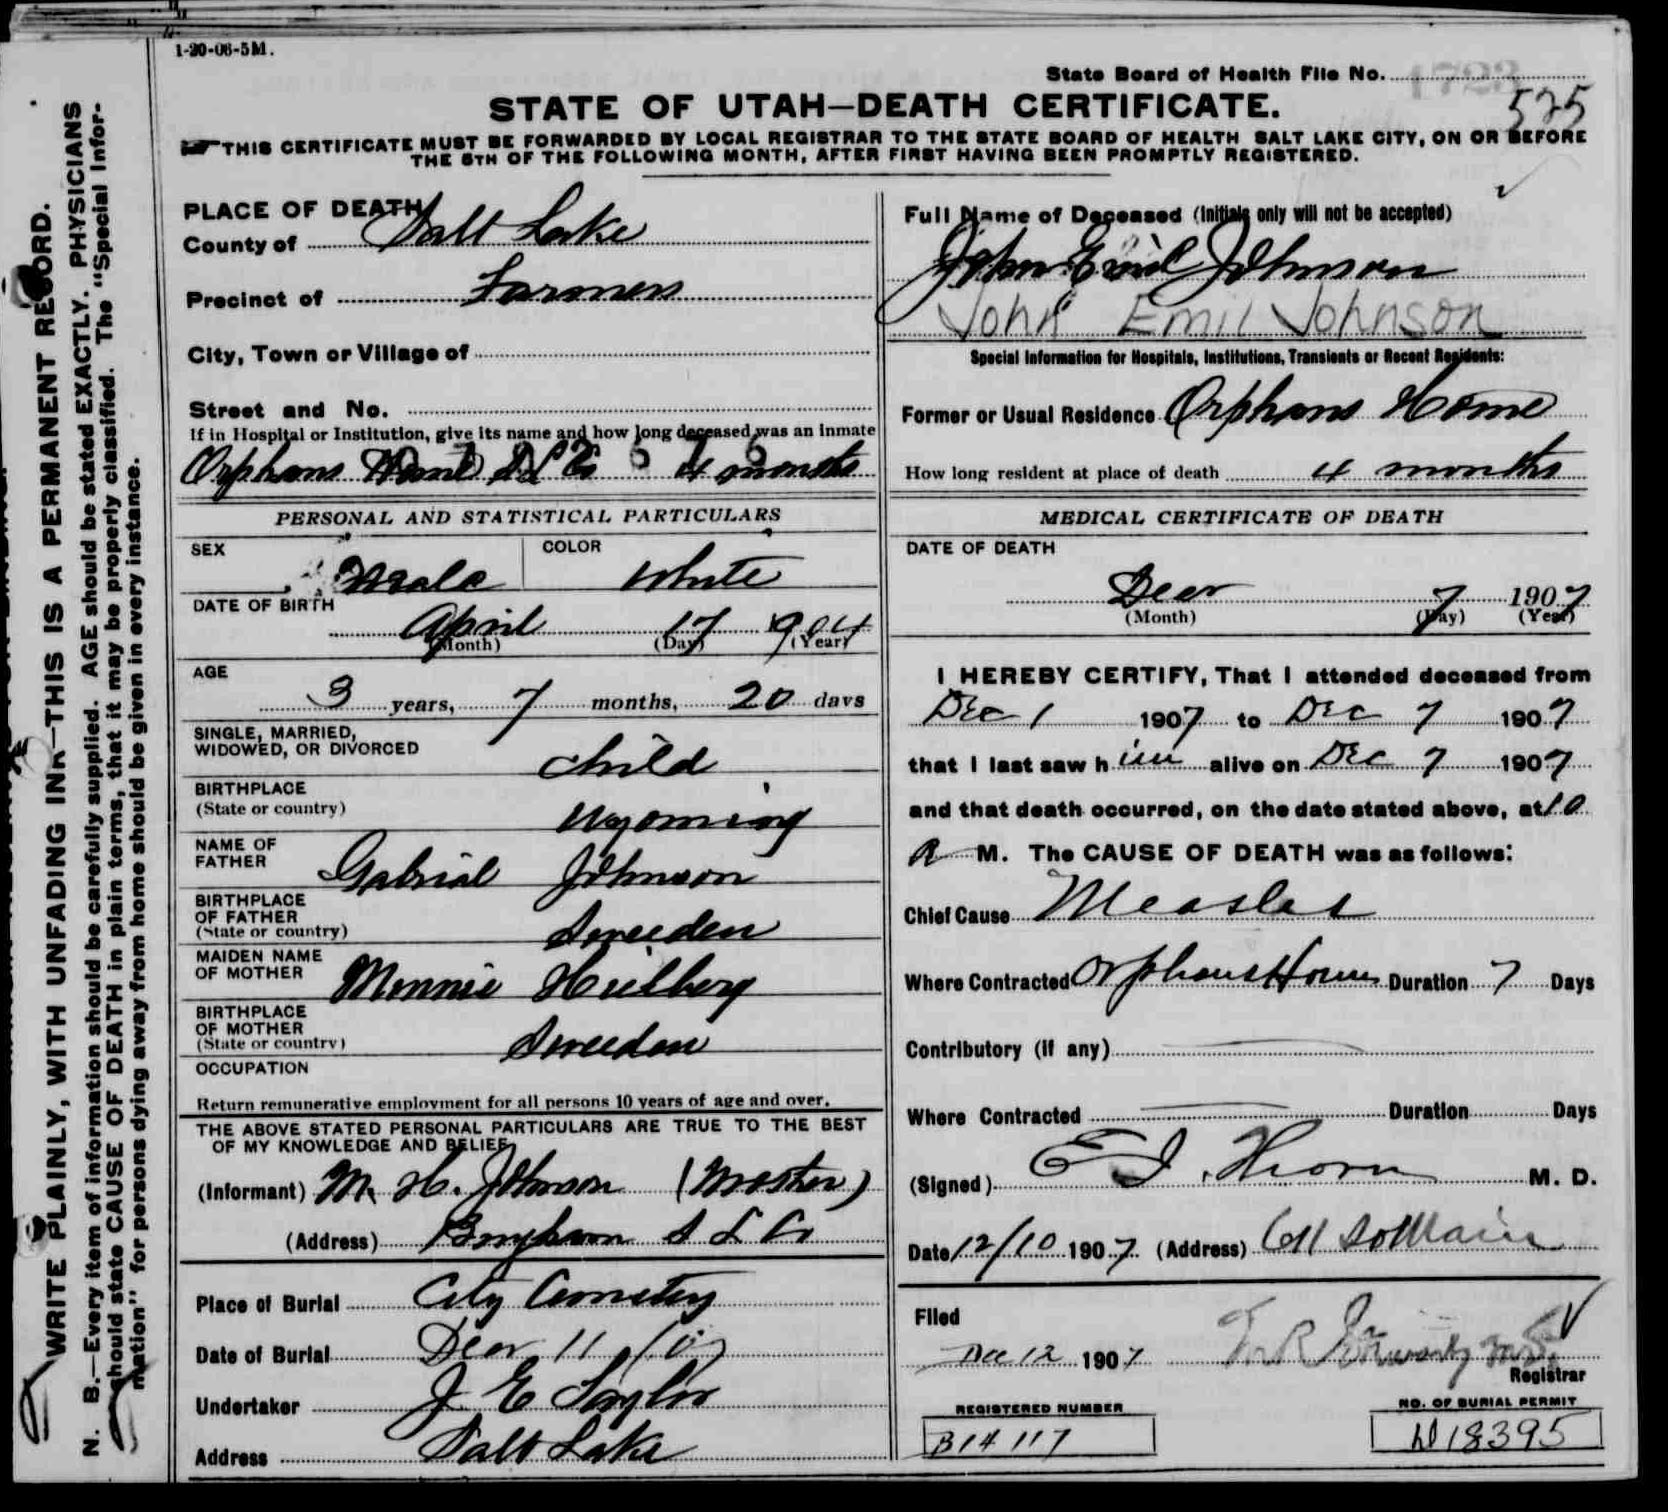 1-20-06-5M.
State Board of Health File No. 1723
525
STATE OF UTAH—DEATH CERTIFICATE.
THIS CERTIFICATE MUST BE FORWARDED BY LOCAL REGISTRAR TO THE STATE BOARD OF HEALTH SALT LAKE CITY, ON OR BEFORE
THE 5TH OF THE FOLLOWING MONTH, AFTER FIRST HAVING BEEN PROMPTLY REGISTERED.
WRITE PLAINLY, WITH UNFADING INK—THIS IS A PERMANENT RECORD.
N. B.—Every item of information should be carefully supplied. AGE should be stated EXACTLY. PHYSICIANS
should state CAUSE OF DEATH in plain terms, that it may be properly classified. The "Special Infor-
mation" for persons dying away from home should be given in every instance.
PLACE OF DEATH
County of Salt Lake
Precinct of Farmers
City, Town or Village of
Street and No.
If in Hospital or Institution, give its name and how long deceased was an inmate
Orphans Home S L Co 4 months
PERSONAL AND STATISTICAL PARTICULARS
SEX Male COLOR White
DATE OF BIRTH
April 17 1904
(Month) (Day) (Year)
AGE
3 years, 7 months, 20 days
SINGLE, MARRIED,
WIDOWED, OR DIVORCED child
BIRTHPLACE
(State or country) Wyoming
NAME OF
FATHER Gabrial Johnson
BIRTHPLACE
OF FATHER
(State or country) Sweeden
MAIDEN NAME
OF MOTHER Minnie Hielberg
BIRTHPLACE
OF MOTHER
(State or country) Sweeden
OCCUPATION
Return remunerative employment for all persons 10 years of age and over.
THE ABOVE STATED PERSONAL PARTICULARS ARE TRUE TO THE BEST
OF MY KNOWLEDGE AND BELIEF
(Informant) M. H. Johnson (Mother)
(Address) Bingham S L Co
Place of Burial City Cemetery
Date of Burial Decr 11 /07
Undertaker J E Taylor
Address Salt Lake
Full Name of Deceased (Initials only will not be accepted)
John Emil Johnson
John Emil Johnson
Special Information for Hospitals, Institutions, Transients or Recent Residents:
Former or Usual Residence Orphans Home
How long resident at place of death 4 months
MEDICAL CERTIFICATE OF DEATH
DATE OF DEATH
Decr 7 1907
(Month) (Day) (Year)
I HEREBY CERTIFY, That I attended deceased from
Dec 1 1907 to Dec 7 1907
that I last saw him alive on Dec 7 1907
and that death occurred, on the date stated above, at 10
A M. The CAUSE OF DEATH was as follows:
Chief Cause Measles
Where Contracted Orphans Home Duration 7 Days
Contributory (if any)
Where Contracted Duration Days
(Signed) M. D.
Date 12/10 1907 (Address) 611 So Main
Filed
Dec 12 1907
Registrar
REGISTERED NUMBER
B14117
NO. OF BURIAL PERMIT
D18395